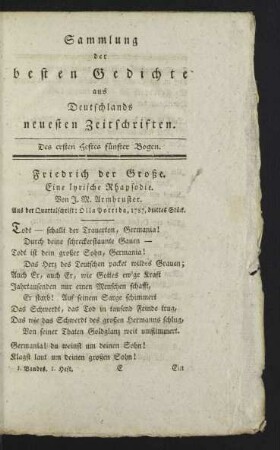 Sammlung
der
besten Gedichte
aus
Deutschlands
neuesten Zeitschriften.
Des ersten Heftes fünfter Bogen.
Friedrich der Große.
Eine lyrische Rhapsodie.
Von J. M. Armbruster.
Aus der Quartalschrift: Olla Potrida, 1787, drittes Stück.
Todt — schallt der Trauerton, Germania!
Durch deine schreckerstaunte Gauen —
Todt ist dein großer Sohn, Germania!
Das Herz des Deutschen packet wildes Grauen;
Auch Er, auch Er, wie Gottes ew'ge Kraft
Jahrtausenden nur einen Menschen schafft,
Er starb! Auf seinem Sarge schimmert
Das Schwerdt, das Tod in tausend Feinde trug,
Das wie das Schwerdt des großen Hermanns schlug,
Von seiner Thaten Goldglanz weit umflimmert.
Germania! du weinst um deinen Sohn!
Klagst laut um deinen großen Sohn!
1. Bandes. 1. Heft. E Ein